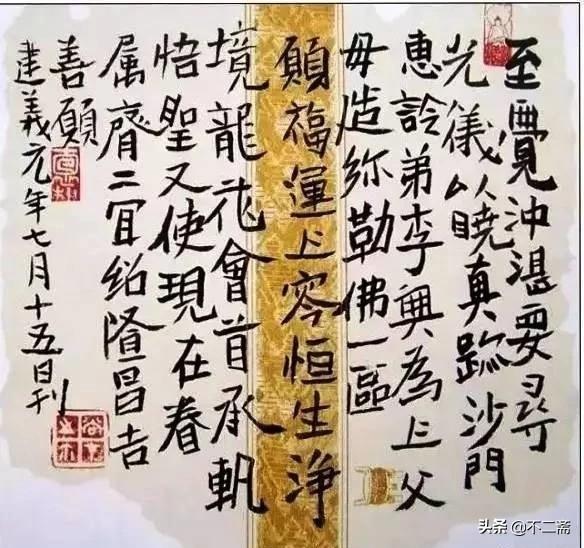 至覺沖湛要尋
光儀以曉真跡沙門
惠詮弟李興為上父
母造弥勒佛一區
願福運上容恒生淨
境龍花會首承軌
悟聖又使現在眷
属齊二宜紹隆昌吉
善願
建義元年七月十五日刊
头条 @不二斋